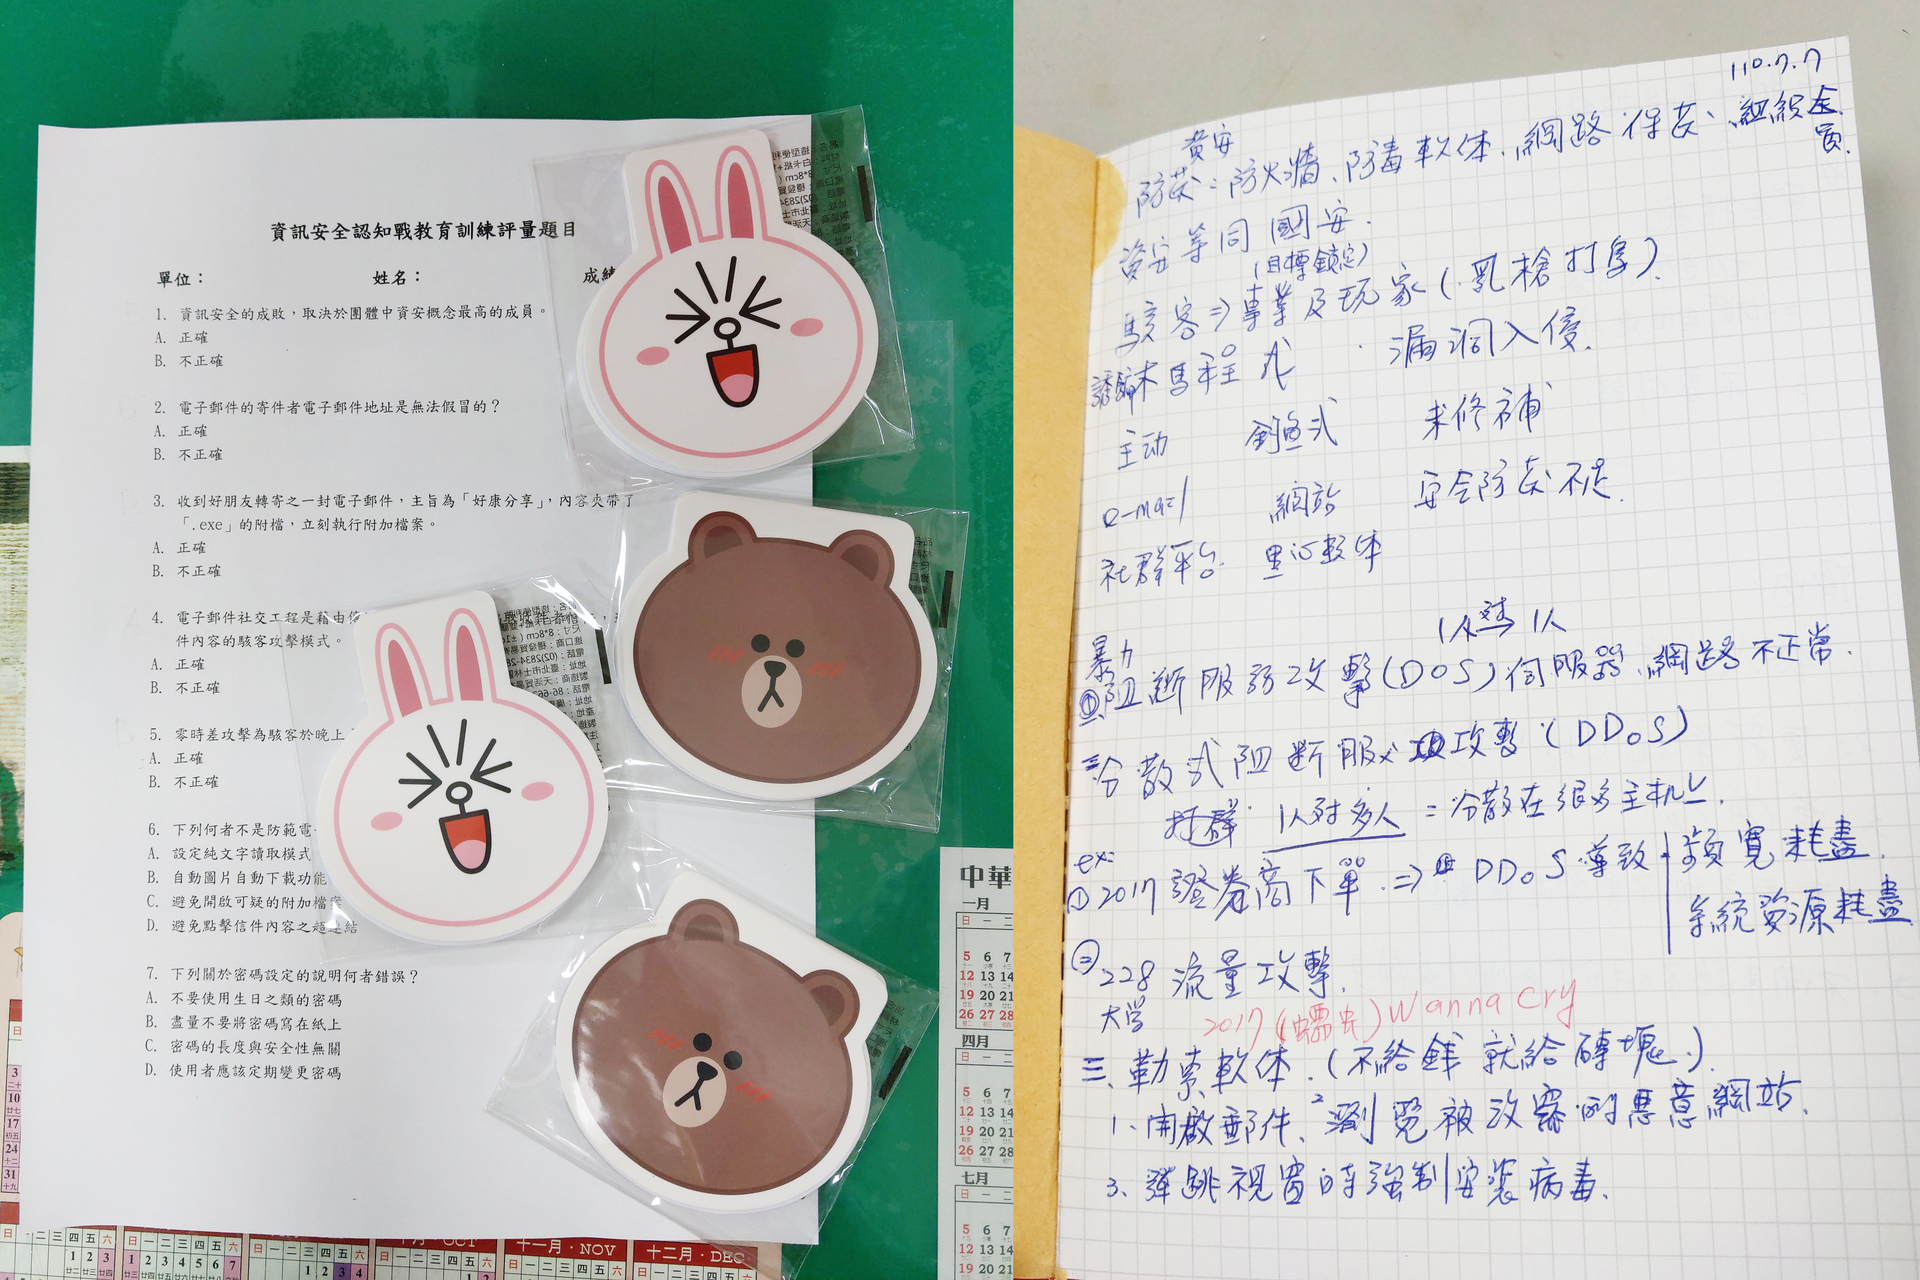 資訊安全認知戰教育訓練評量題目
單位： 姓名： 成績
1. 資訊安全的成敗，取決於團體中資安概念最高的成員。
A. 正確
B. 不正確
2. 電子郵件的寄件者電子郵件地址是無法假冒的？
A. 正確
B. 不正確
3. 收到好朋友轉寄之一封電子郵件，主旨為「好康分享」，內容夾帶了
「.exe」的附檔，立刻執行附加檔案。
A. 正確
B. 不正確
4. 電子郵件社交工程是藉由
件內容的駭客攻擊模式。
A. 正確
B. 不正確
5. 零時差攻擊為駭客於晚上
A. 正確
B. 不正確
6. 下列何者不是防範電
A. 設定純文字讀取模式
B. 自動圖片自動下載功能
C. 避免開啟可疑的附加檔案
D. 避免點擊信件內容之超連結
7. 下列關於密碼設定的說明何者錯誤？
A. 不要使用生日之類的密碼
B. 盡量不要將密碼寫在紙上
C. 密碼的長度與安全性無關
D. 使用者應該定期變更密碼
中華
一月
四月
七月
十一月·NOV
十二月·DEC
110.7.7
資安
防護：防火牆、防毒軟体、網路保護、組織全員.
資安等同國安.
(目標鎖定)
駭客⇒專業及玩家(亂槍打鳥).
誘餌木馬程式 漏洞入侵.
主动 釣魚式 未修補
e-mail 網站 安全防護不足.
社群平台 惡心軟体
1人對1人
暴力
①阻斷服務攻擊(DOS)伺服器、網路不正常.
二分散式阻斷服 攻擊(DDoS)
打群 1人對多人 = 分散在很多主机上.
ex:
①2017證券商下單.⇒ DDoS導致 頻寬耗盡.
系統資源耗盡
②228流量攻擊.
大学
2017(蠕虫) Wanna Cry
三、勒索軟体.(不給錢就給磚塊.)
1、開啟郵件、2瀏覽被汝 的惡意網站.
3、彈跳視窗時強制安裝病毒.